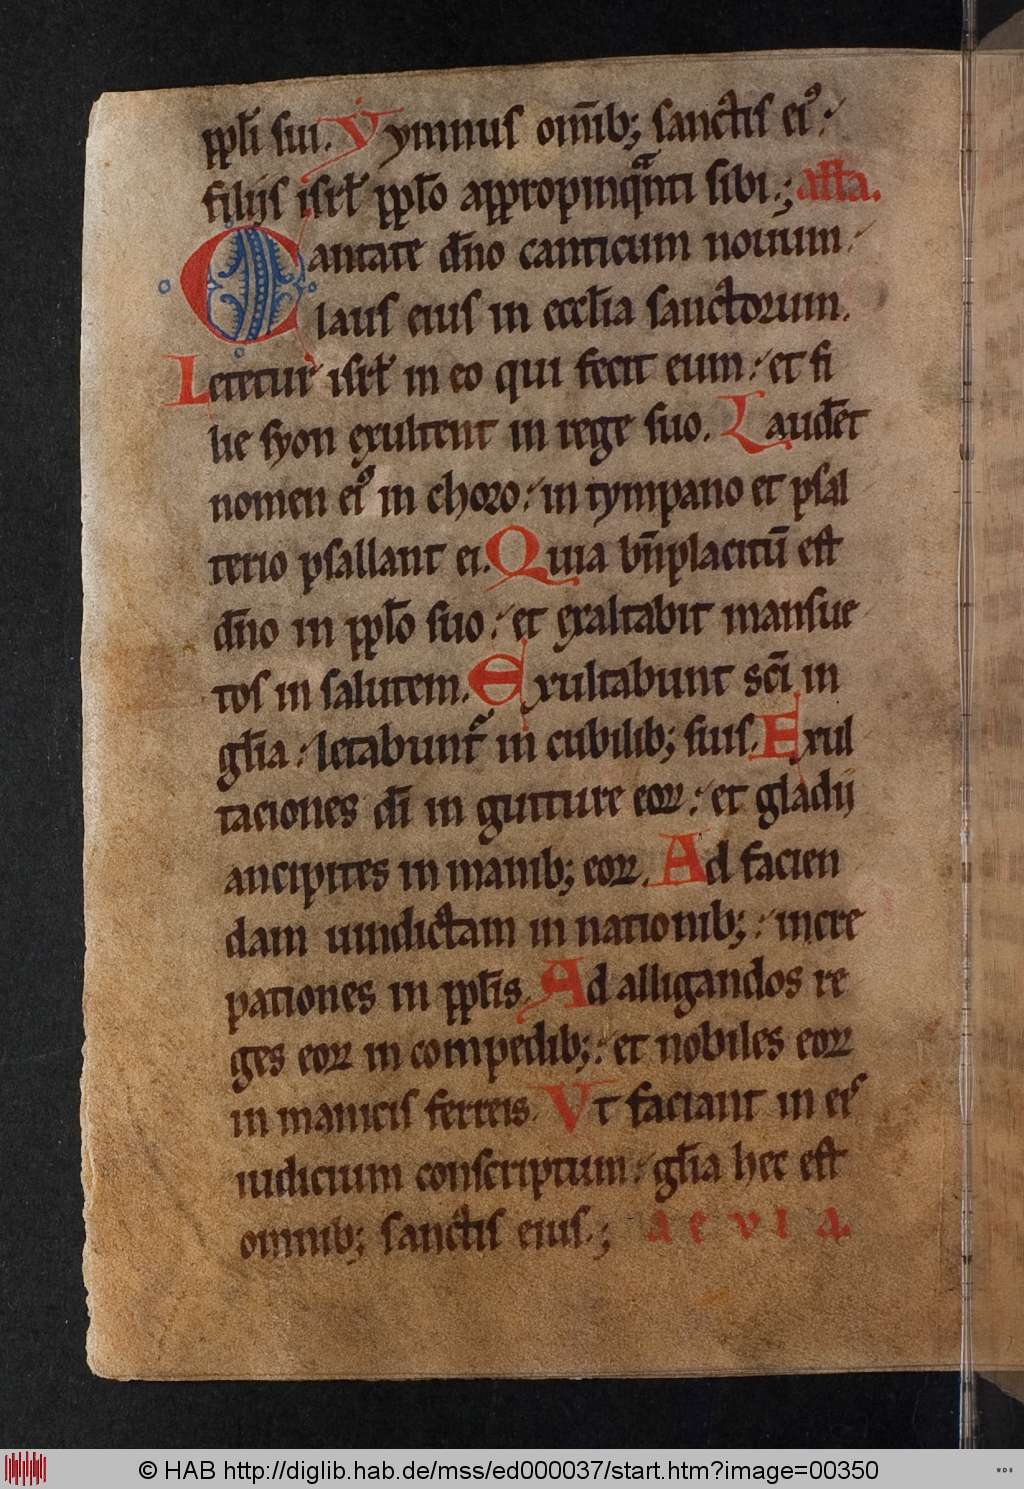 ppl̄i sui. Ẏymnus om̄ib; sanctis eiꝰ:
filijs isrł ppl̄o appropinqͣnti sibi.; aƚƚa.
Cantate dn̄o canticum nouum:
laus eius in eccl̄ia sanctorum.
Letetur isrł in eo qui fecit eum: et fi
lie syon exultent in rege suo. Laudēt
nomen eiꝰ in choro: in tympano et psal
terio psallant ei. Quia bn̄placitū est
dn̄o in ppl̄o suo: et exaltabit mansue
tos in salutem. Exultabunt sc̄i in
gl̄ia: letabunt᷑ in cubilib; suis. Exul
taciones dī in gutture eoꝝ: et gladij
ancipites in manib; eoꝝ. Ad facien
dam uindictam in nationib;: incre
pationes in ppl̄is. Ad alligandos re
ges eoꝝ in compedib;: et nobiles eoꝝ
in manicis ferreis. Vt faciant in eis
iudicium conscriptum: gl̄ia hec est
omnib; sanctis eius.; a e v i a.
© HAB http://diglib.hab.de/mss/ed000037/start.htm?image=00350